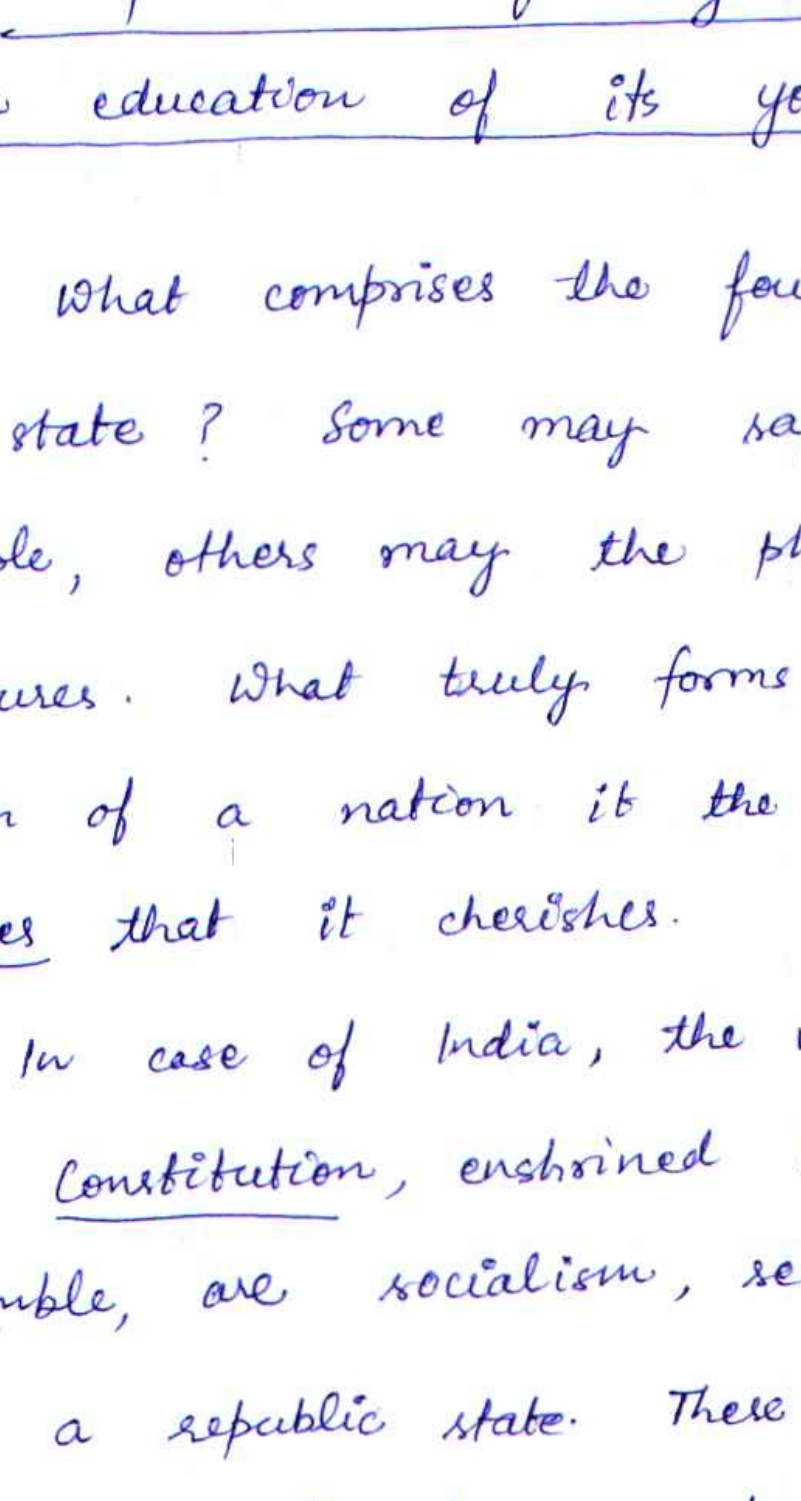 education of its yo
What comprises the fou
state ? Some may sa
ple, others may the ph
ures. What truly forms
n of a nation it the
es that it cherishes.
In case of India, the
Constitution, enshrined
mble, are socialism, se
a republic state. These